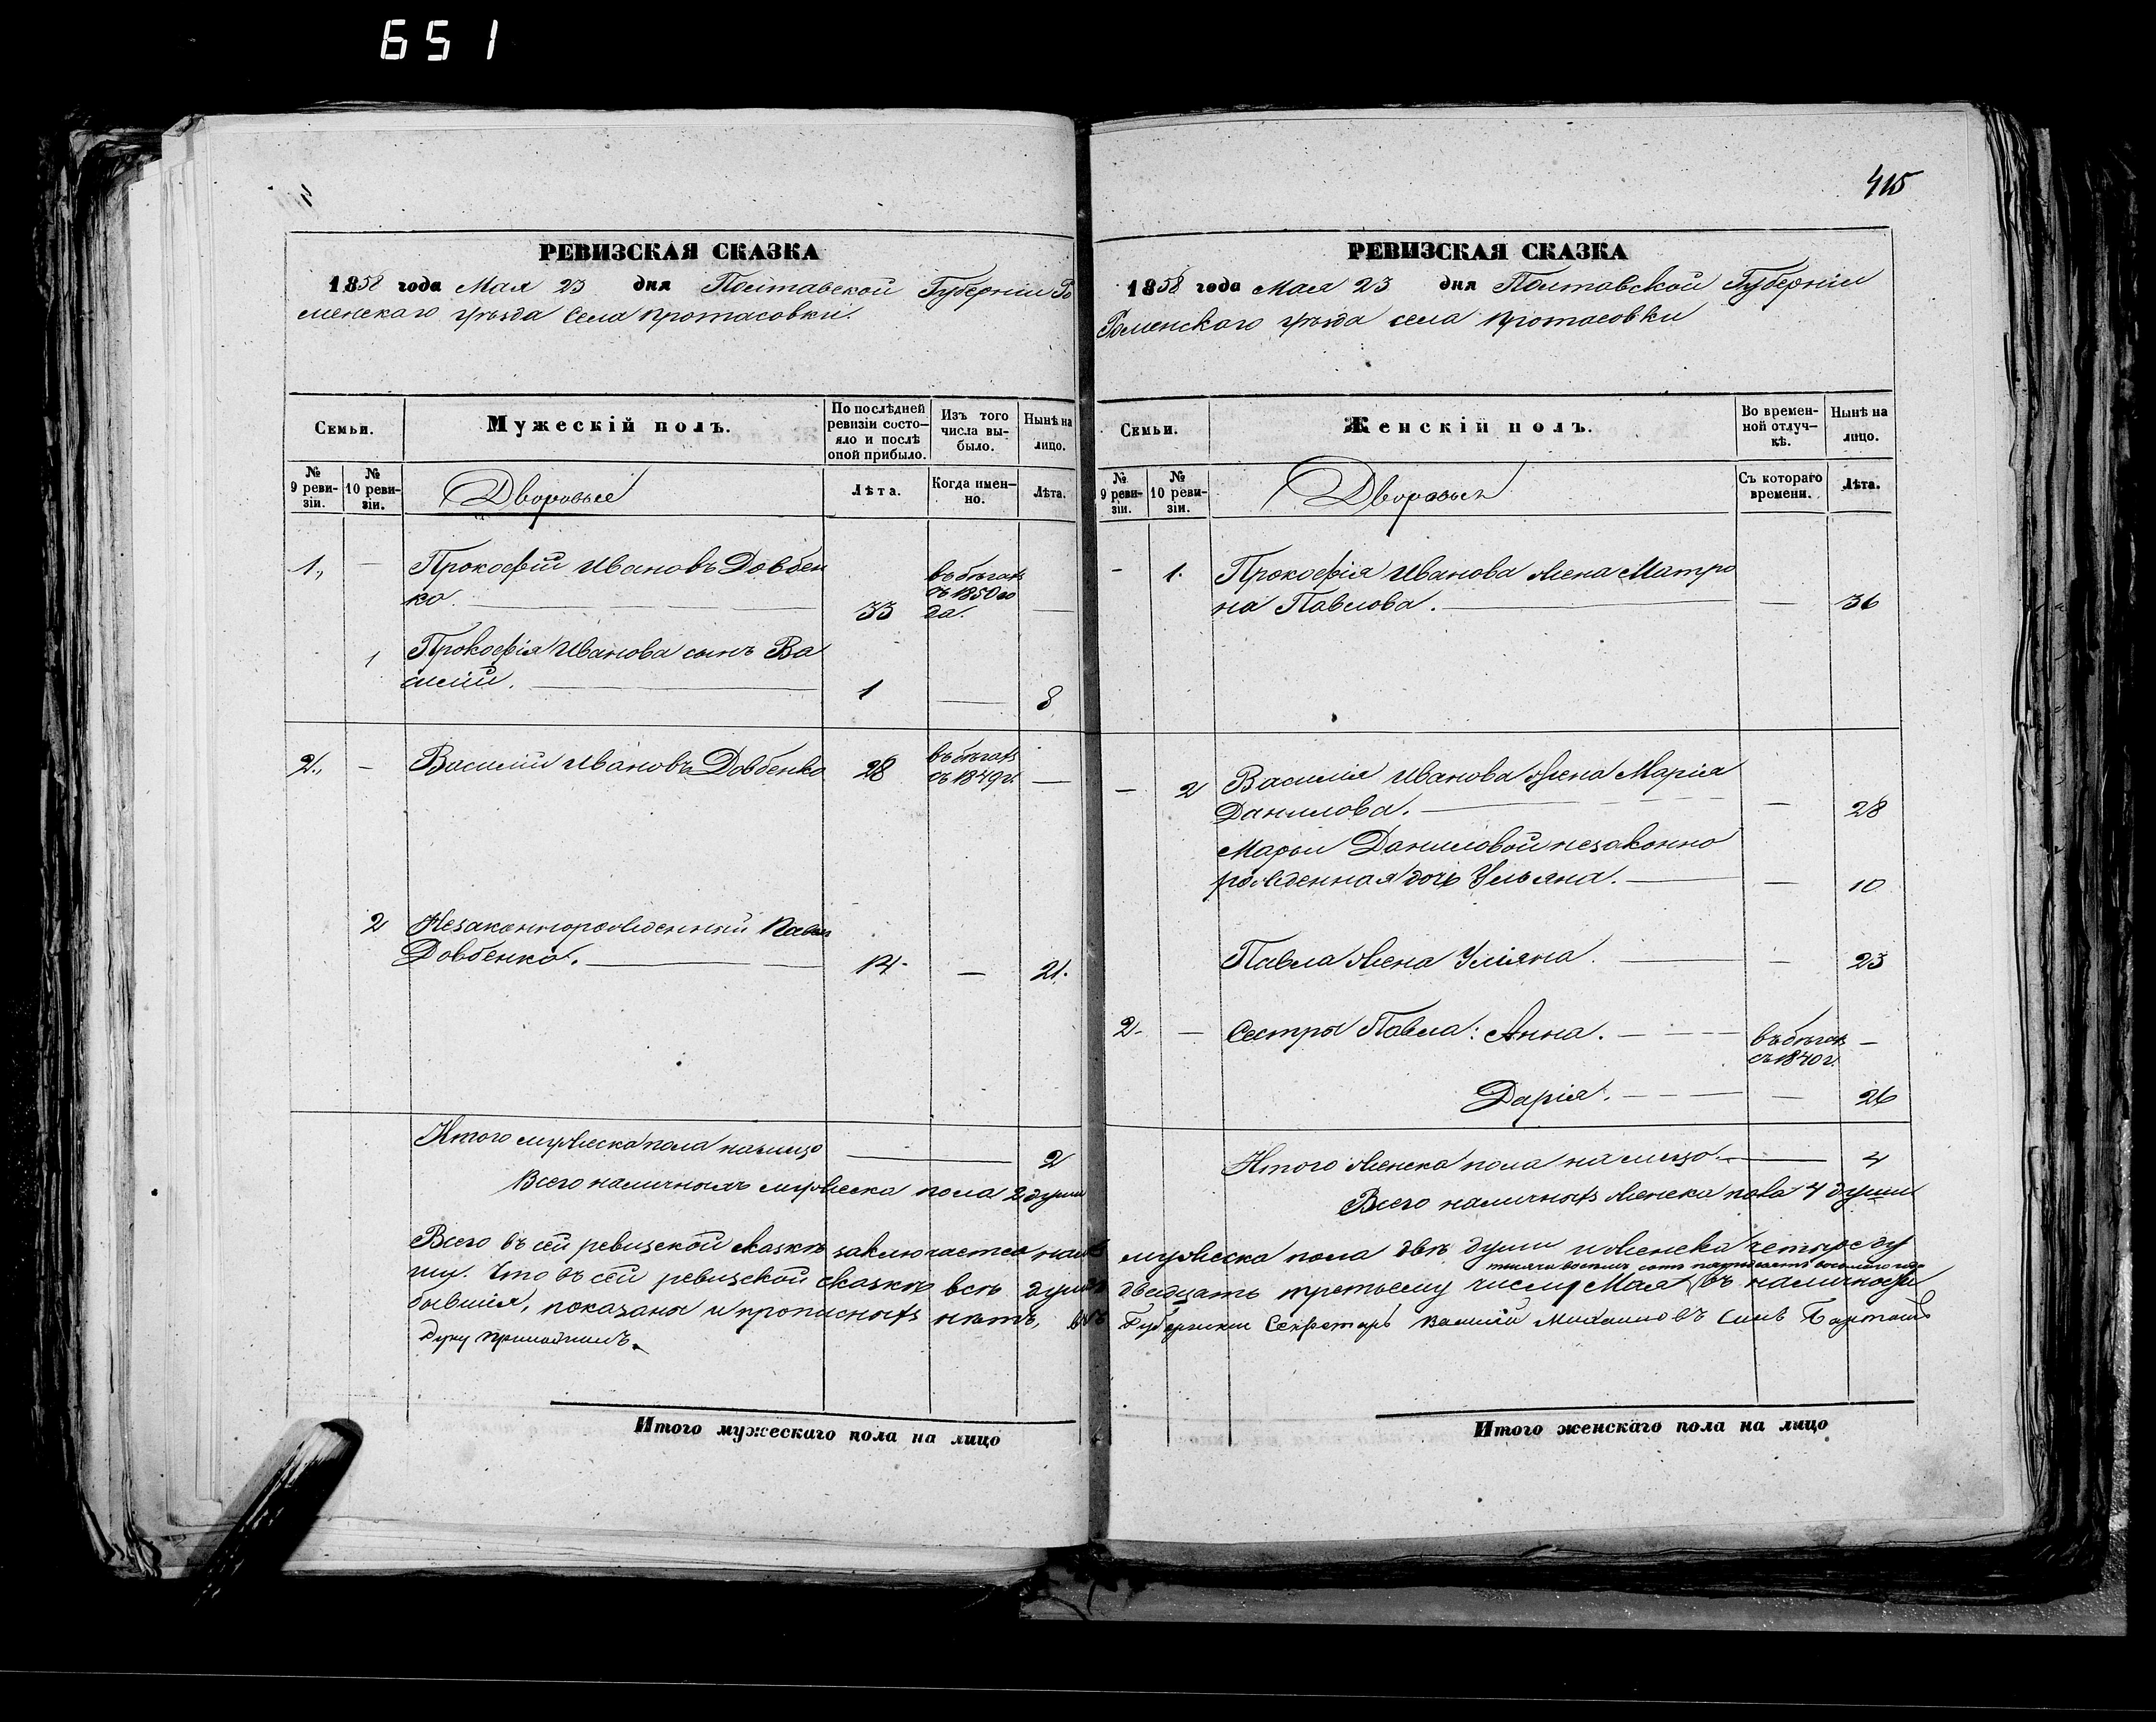 651
РЕВИЗСКАЯ СКАЗКА
1858 года Мая 23 дня Полтавской Губерніи Ро
менскаго уѣзда села Протасовки.
Семьи.
Мужескій полъ.
По послѣдней ревизіи состо-
яло и послѣ оной прибыло.
Изъ того числа вы-
было.
Нынѣ на лицо.
№ 9 реви-
зіи.
№ 10 реви-
зіи.
Дворовые
Лѣта.
Когда имен-
но.
Лѣта.
1, — Прокофій Ивановъ Довбен
ко. 33 въ бѣгахъ съ 1850 го
да. —
1 Прокофія Иванова сынъ Ва
силій. 1 — 8
2., — Василий Ивановъ Довбенко 28 въ бѣгахъ
съ 1849 г. —
2 Незаконнорожденный Павел
Довбенко. 14. — 21.
Итого мужеска пола налицо — 2
Всего наличныхъ мужеска пола 2 души
415
РЕВИЗСКАЯ СКАЗКА
1858 года Мая 23 дня Полтавской Губерніи
Роменскаго уѣзда села Протасовки
Семьи.
Женскій полъ.
Во времен-
ной отлуч-
кѣ.
Нынѣ на лицо.
№ 9 реви-
зіи.
№ 10 реви-
зіи.
Дворовыя
Съ котораго времени.
Лѣта.
- 1. Прокофія Иванова жена Матро
на Павлова. — 36
— 2 Василія Иванова жена Марія
Данилова. — 28
Марьи Даниловой незаконно
рожденная дочь Ульяна. — 10
Павла жена Уліяна. — 23
2- — Сестры Павла: Анна. въ бѣгахъ —
съ 1840 г.
Дарія. — 26
Итого женска пола на лицо. — 4
Всего наличныхъ женска пола 4 души
Всего въ сей ревизской сказкѣ заключается мужеска пола двѣ души и женска четыре ду
тысяча восемь сотъ пятьдесятъ восьмаго года
ши. Что въ сей ревизской сказкѣ всѣ души двадцать третьему числу Мая въ наличности
бывшія, показаны и прописныхъ нѣтъ, Губернскій Секретарь Василій Михайловъ Сынъ
руку приложилъ.
Итого мужескаго пола на лицо
Итого женскаго пола на лицо